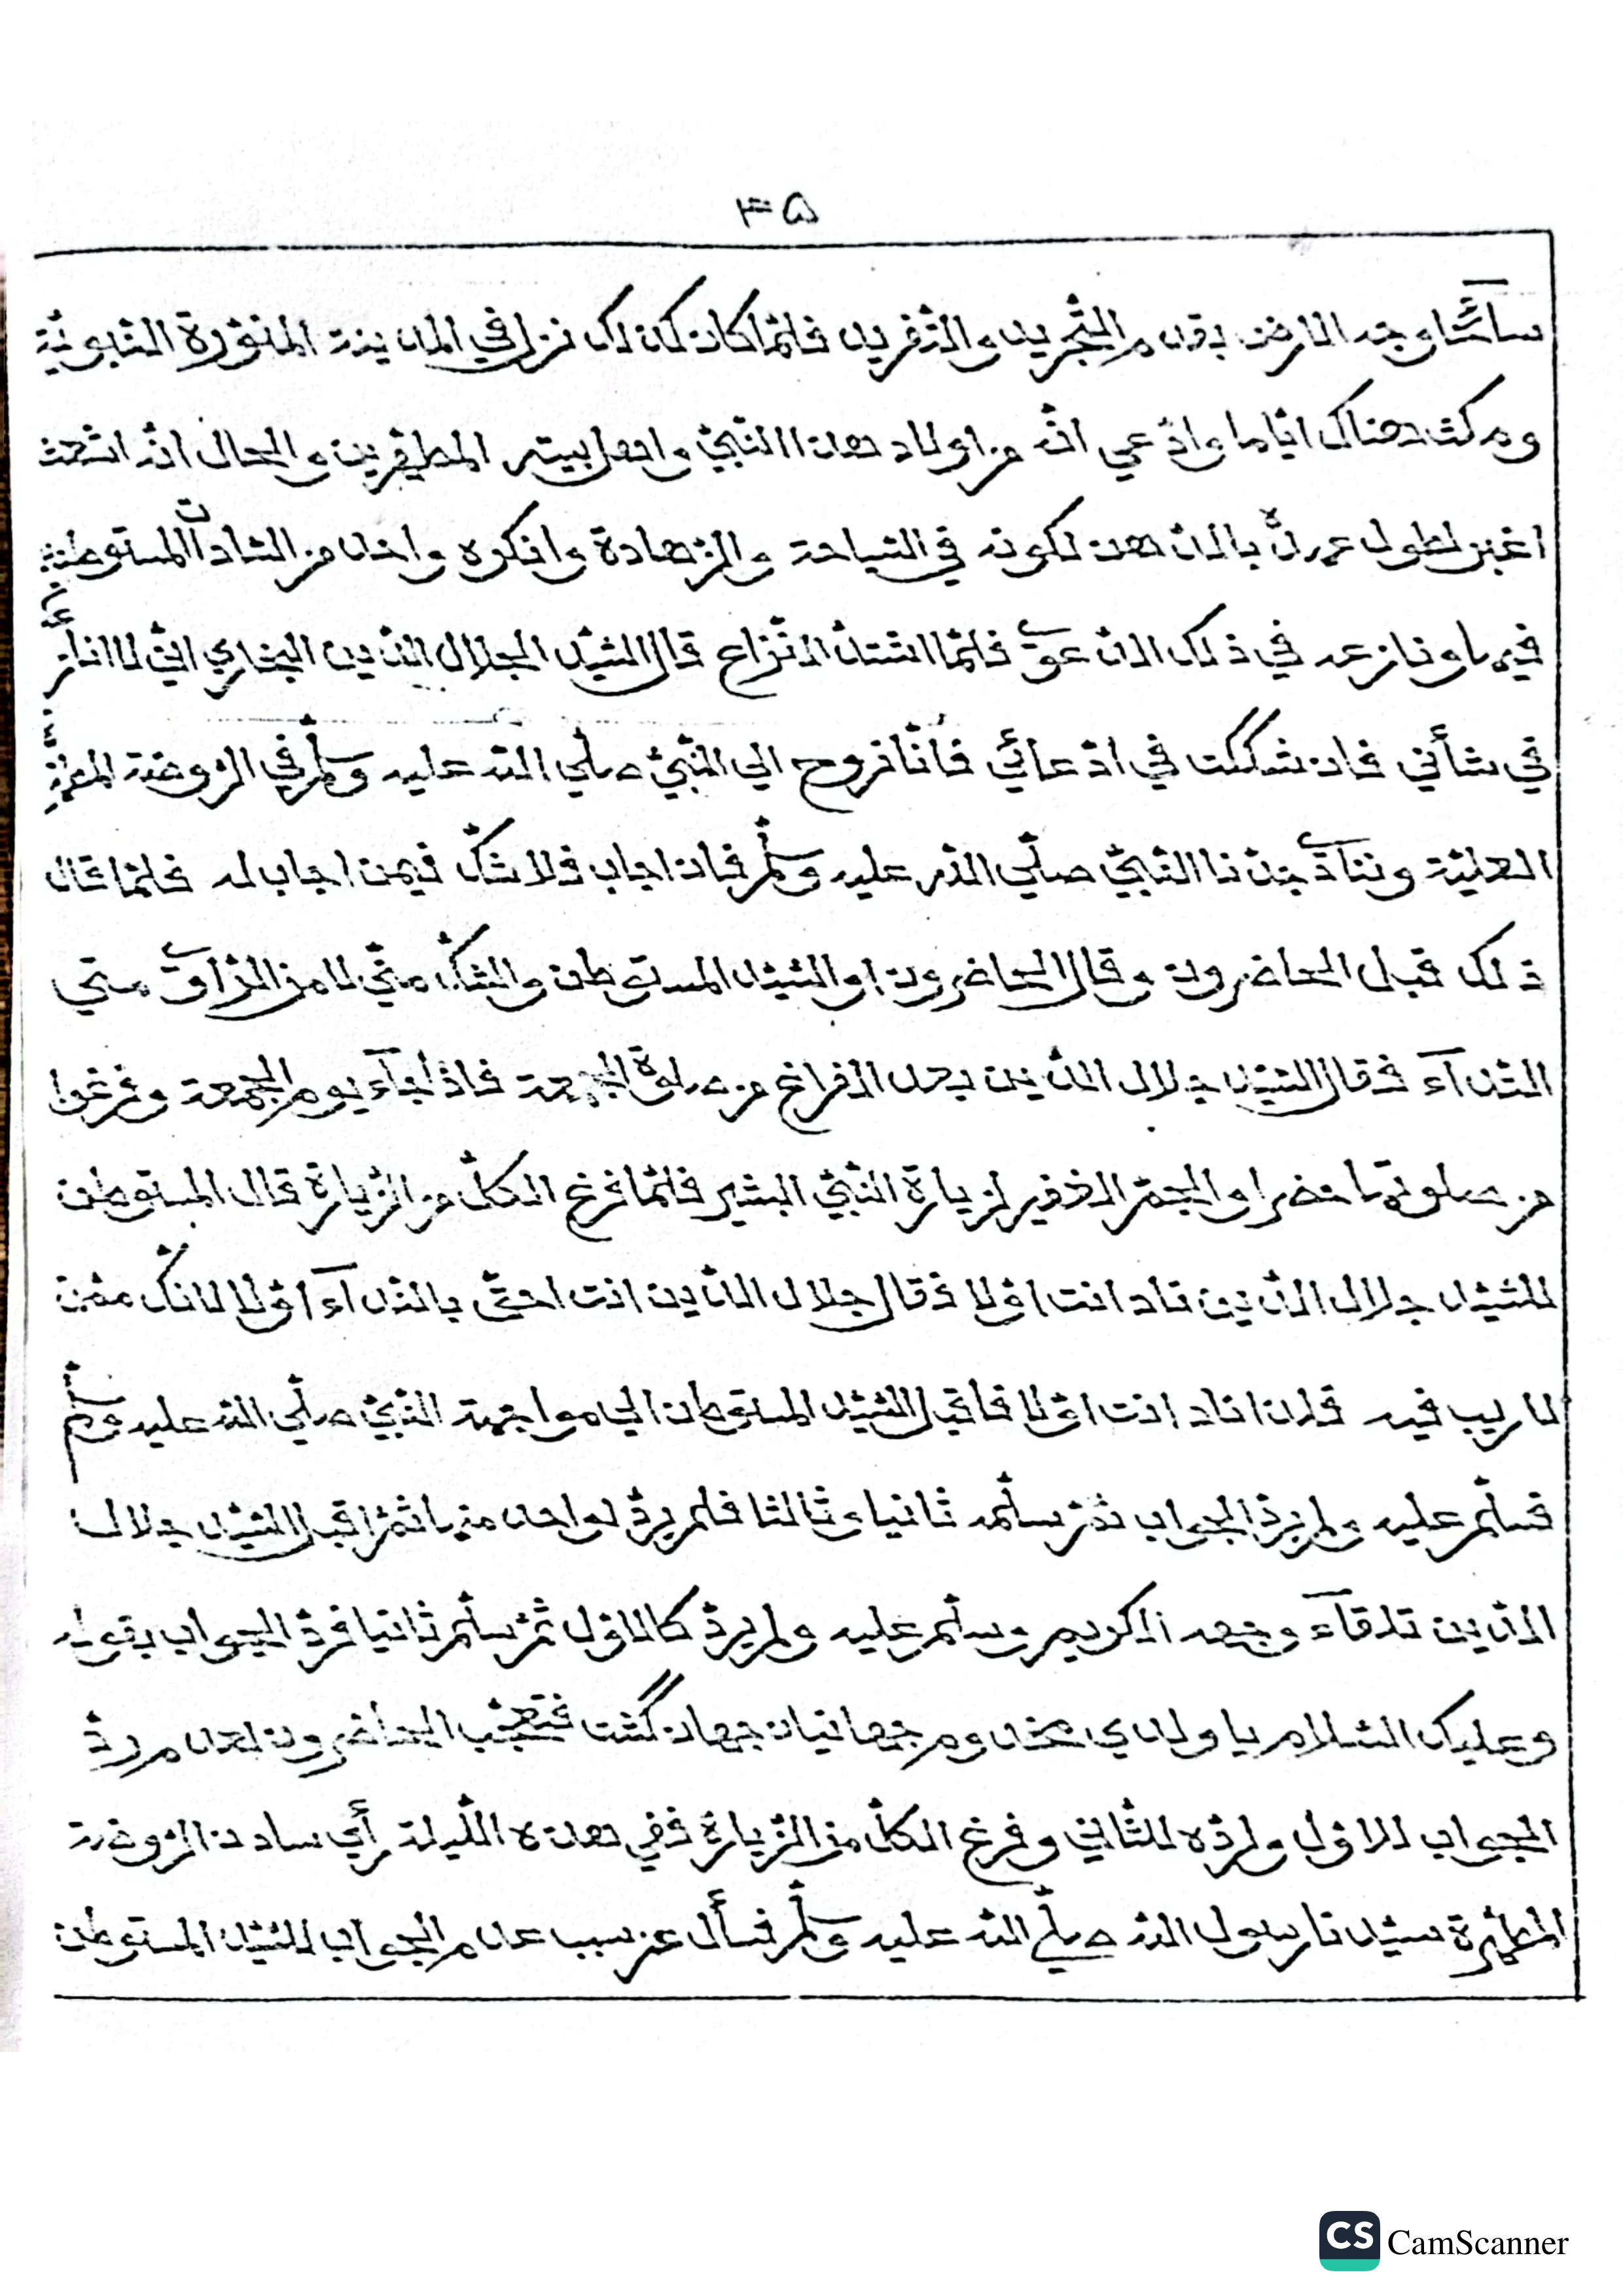 ٣٥
سائحا وجه الارض بقدم التجريد والتفريد فلمّا كان كذلك نزل في المدينة المنوّرة النّبويّة
ومكث هناك ايّاما وادّعي انّه من اولاد هذا النّبيّ واهل بيته المطهّرين والحال انّه اشعث
اغبر لطول عهده بالدّهن لكونه في السّياحة والزّهادة وانكره واحد من السّادات المستوطنين
فيها ونازعه في ذلك الدّعوي فلمّا اشتدّ النّزاع قال السّيّد الجلال الدّين البخاري انّي لا انازعك
في شأني فان شككت في ادّعائي فأنّا نروح الي النّبيّ صلّي اللّه عليه وسلّم في الرّوضة المعلّاة
العليّة وننادي جدّنا النّبيّ صلّي اللّه عليه وسلّم فان اجاب فلا شكّ فيمن اجاب له فلمّا قال
ذلك قبل الحاضرون وقال الحاضرون او السّيّد المستوطن والشكّ منّي لا من الرّاوي متي
النّدآء فقال السّيّد جلال الدّين بعد الفراغ من صلوة الجمعة فاذا جآء يوم الجمعة وفرغوا
من صلوتها حضر او الجمّ الغفير لزيارة النّبيّ البشير فلمّا فرغ الكلّ من الزّيارة قال المستوطن
للسّيّد جلال الدّين ناد انت اوّلا فقال جلال الدّين انت احقّ بالنّدآء اوّلا لانّك ممّن
لا ريب فيه فلذا ناد انت اوّلا فاقبل السّيّد المستوطن الي مواجهة النّبيّ صلّي اللّه عليه وسلّم
فسلّم عليه ولم يردّ الجواب ثمّ سلّمه ثانيا وثالثا فلم يردّ لواحد منها ثمّ اقبل السّيّد جلال
الدّين تلقآء وجهه الكريم وسلّم عليه ولم يردّ كالاوّل ثمّ سلّم ثانيا فردّ الجواب بقوله
وعليك السّلام يا ولدي مخدوم جهانيان جهان گشت فتعجّب الحاضرون لعدم ردّ
الجواب للاوّل ولردّه للثّاني وفرغ الكلّ من الزّيارة ففي هذه اللّيلة رأي سادن الرّوضة
المطهّرة سيّدنا رسول اللّه صلّي اللّه عليه وسلّم فسأل عن سبب عدم الجواب للسّيّد المستوطن
CS CamScanner